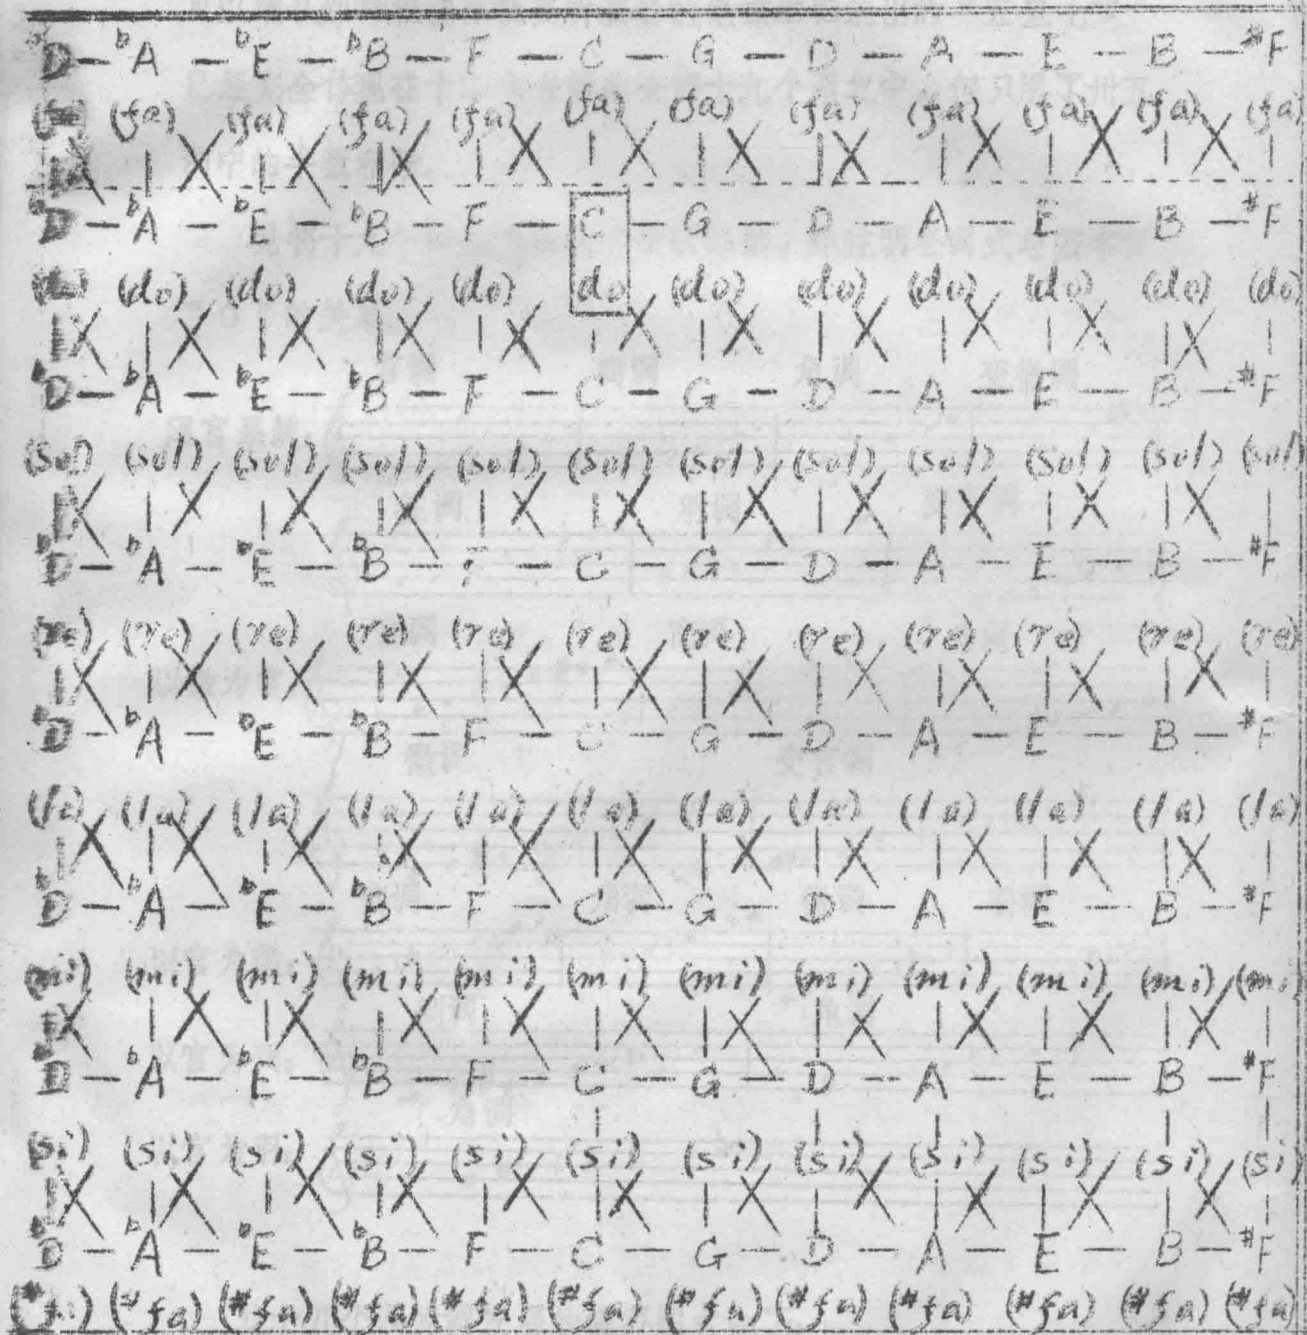 ♭D — ♭A — ♭E — ♭B — F — C — G — D — A — E — B — #F
(fa) (fa) (fa) (fa) (fa) (fa) (fa) (fa) (fa) (fa) (fa)
♭D — ♭A — ♭E — ♭B — F — C — G — D — A — E — B — #F
(do) (do) (do) (do) (do) (do) (do) (do) (do) (do) (do) (do)
♭D — ♭A — ♭E — ♭B — F — C — G — D — A — E — B — #F
(sol) (sol) (sol) (sol) (sol) (sol) (sol) (sol) (sol) (sol) (sol) (sol)
♭D — ♭A — ♭E — ♭B — — C — G — D — A — E — B — #F
(re) (re) (re) (re) (re) (re) (re) (re) (re) (re) (re) (re)
♭D — ♭A — ♭E — ♭B — F — C — G — D — A — E — B — #F
(la) (la) (la) (la) (la) (la) (la) (la) (la) (la) (la) (la)
♭D — ♭A — ♭E — ♭B — F — C — G — D — A — E — B — #F
(mi) (mi) (mi) (mi) (mi) (mi) (mi) (mi) (mi) (mi) (mi) (mi)
♭D — ♭A — ♭E — ♭B — F — C — G — D — A — E — B — #F
(si) (si) (si) (si) (si) (si) (si) (si) (si) (si) (si) (si)
♭D — ♭A — ♭E — ♭B — F — C — G — D — A — E — B — #F
(#fa) (#fa) (#fa) (#fa) (#fa) (#fa) (#fa) (#fa) (#fa) (#fa) (#fa) (#fa)